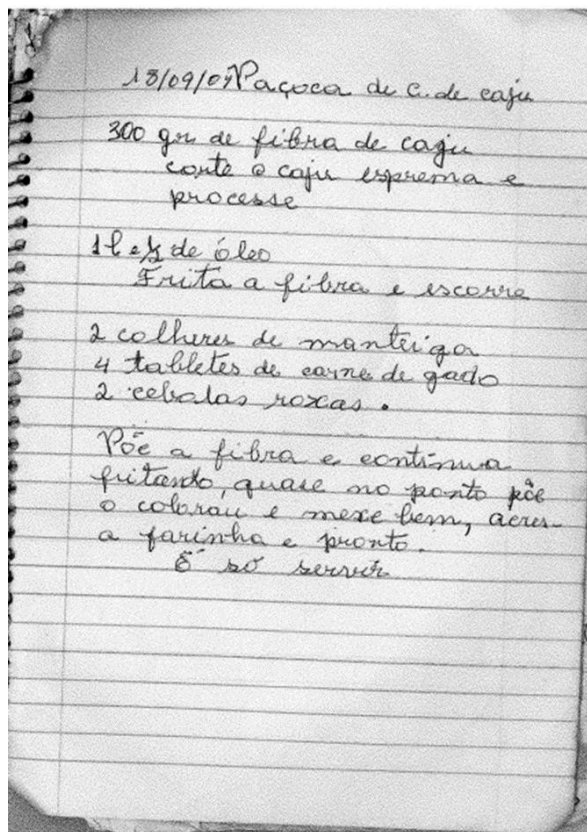 18/09/07 Paçoca de C. de caju
300 gr de fibra de caju
corte o caju esprema e
processe
1l e ½ de óleo
Frita a fibra e escorre
2 colheres de manteiga
4 tabletes de carne de gado
2 cebolas roxas.
Põe a fibra e continua
fritando, quase no ponto põe
o colorau e mexe bem, acres-
a farinha e pronto.
É só servir